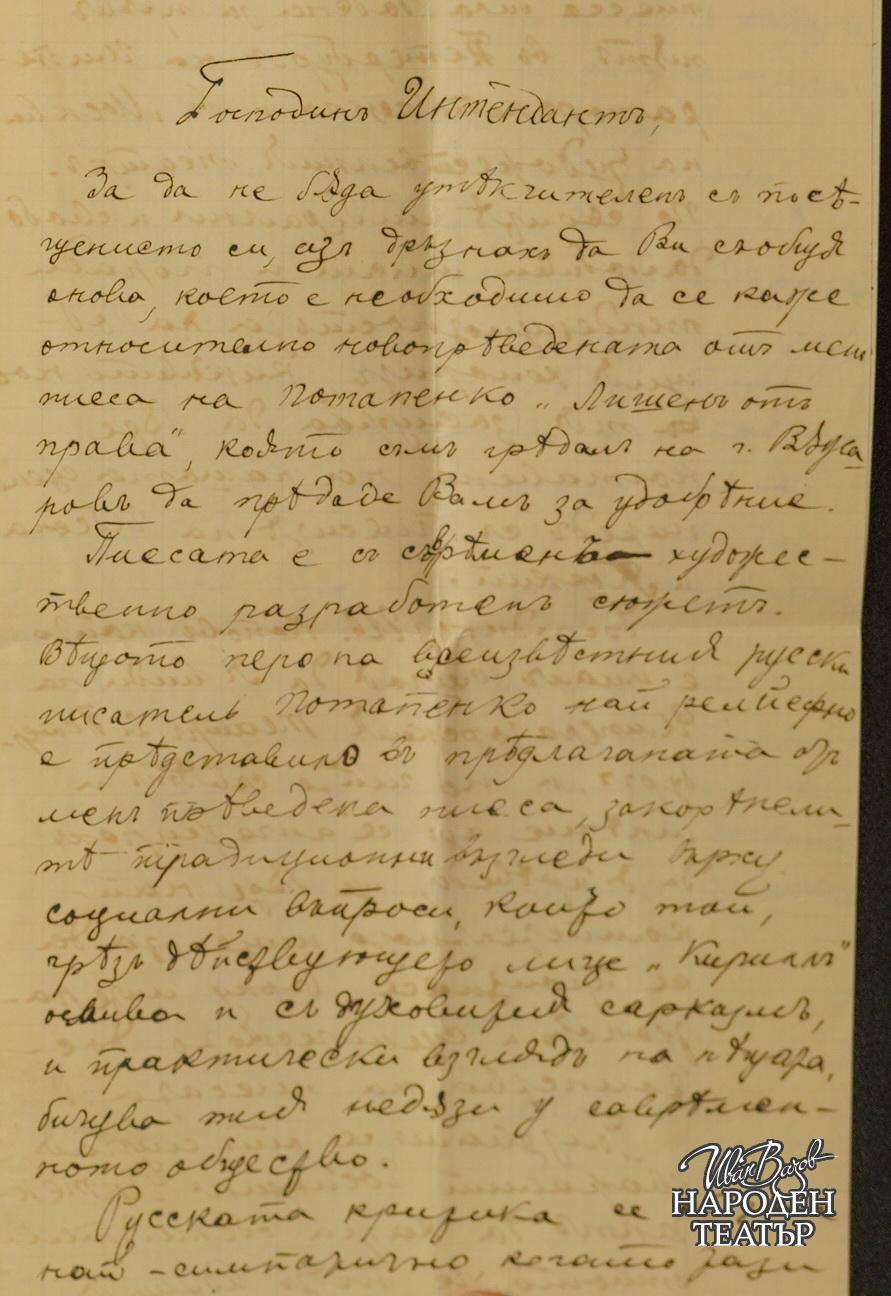 Господинъ Интендантъ,
За да не бѫда утѣкчителенъ съ посѣ-
щението си, азъ дръзнахъ да Ви съобщя
онова, което е необходимо да се каже
относително новопрѣведената отъ мен
пиеса на Потапенко „Лишенъ отъ
права", която съмъ
на г.
ровъ да прѣдаде Вамъ за удобрѣние.
Пиесата е съ съврѣменъ художес-
твенно разработенъ сюжетъ.
Вѣщото перо на всеизвѣстния русски
писатель Потапенко най релйефно
е прѣдставило въ прѣдлаганата
менъ прѣведена пиеса, закорѣнели-
тѣ традиционни взгледи върху
социални въпроси, които той,
чрѣзъ дѣйствующето лице „Кириллъ"
осмива и съ духовития сарказмъ,
и практически взглядъ на нѣщата,
бичува тия недѫзи у соврѣмен-
ното общество.
Русската критика се
най-симпатично когато рази
Иван Вазов
НАРОДЕН
ТЕАТЪР